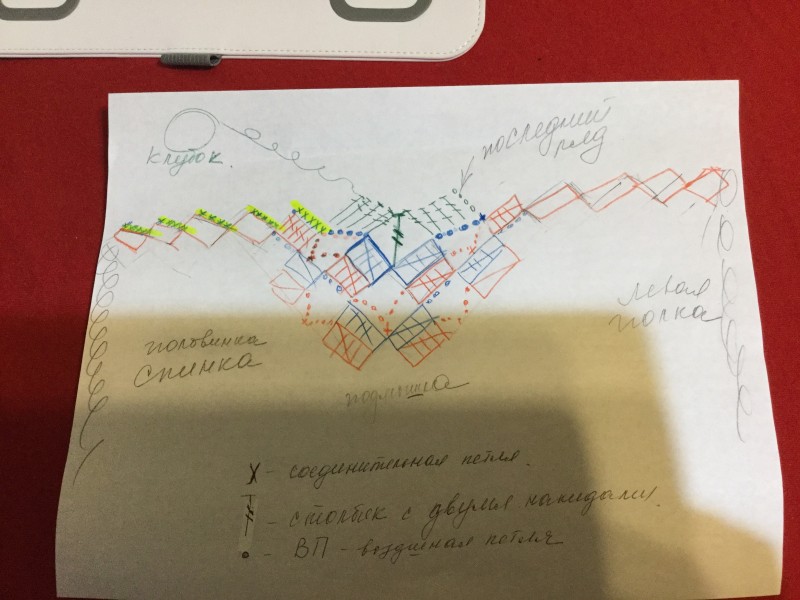 клубок.
последний
ряд
левая
полка
половинка
спинка
подмышка
X - соединительная петля.
- столбик с двумя накидами.
• - ВП - воздушная петля